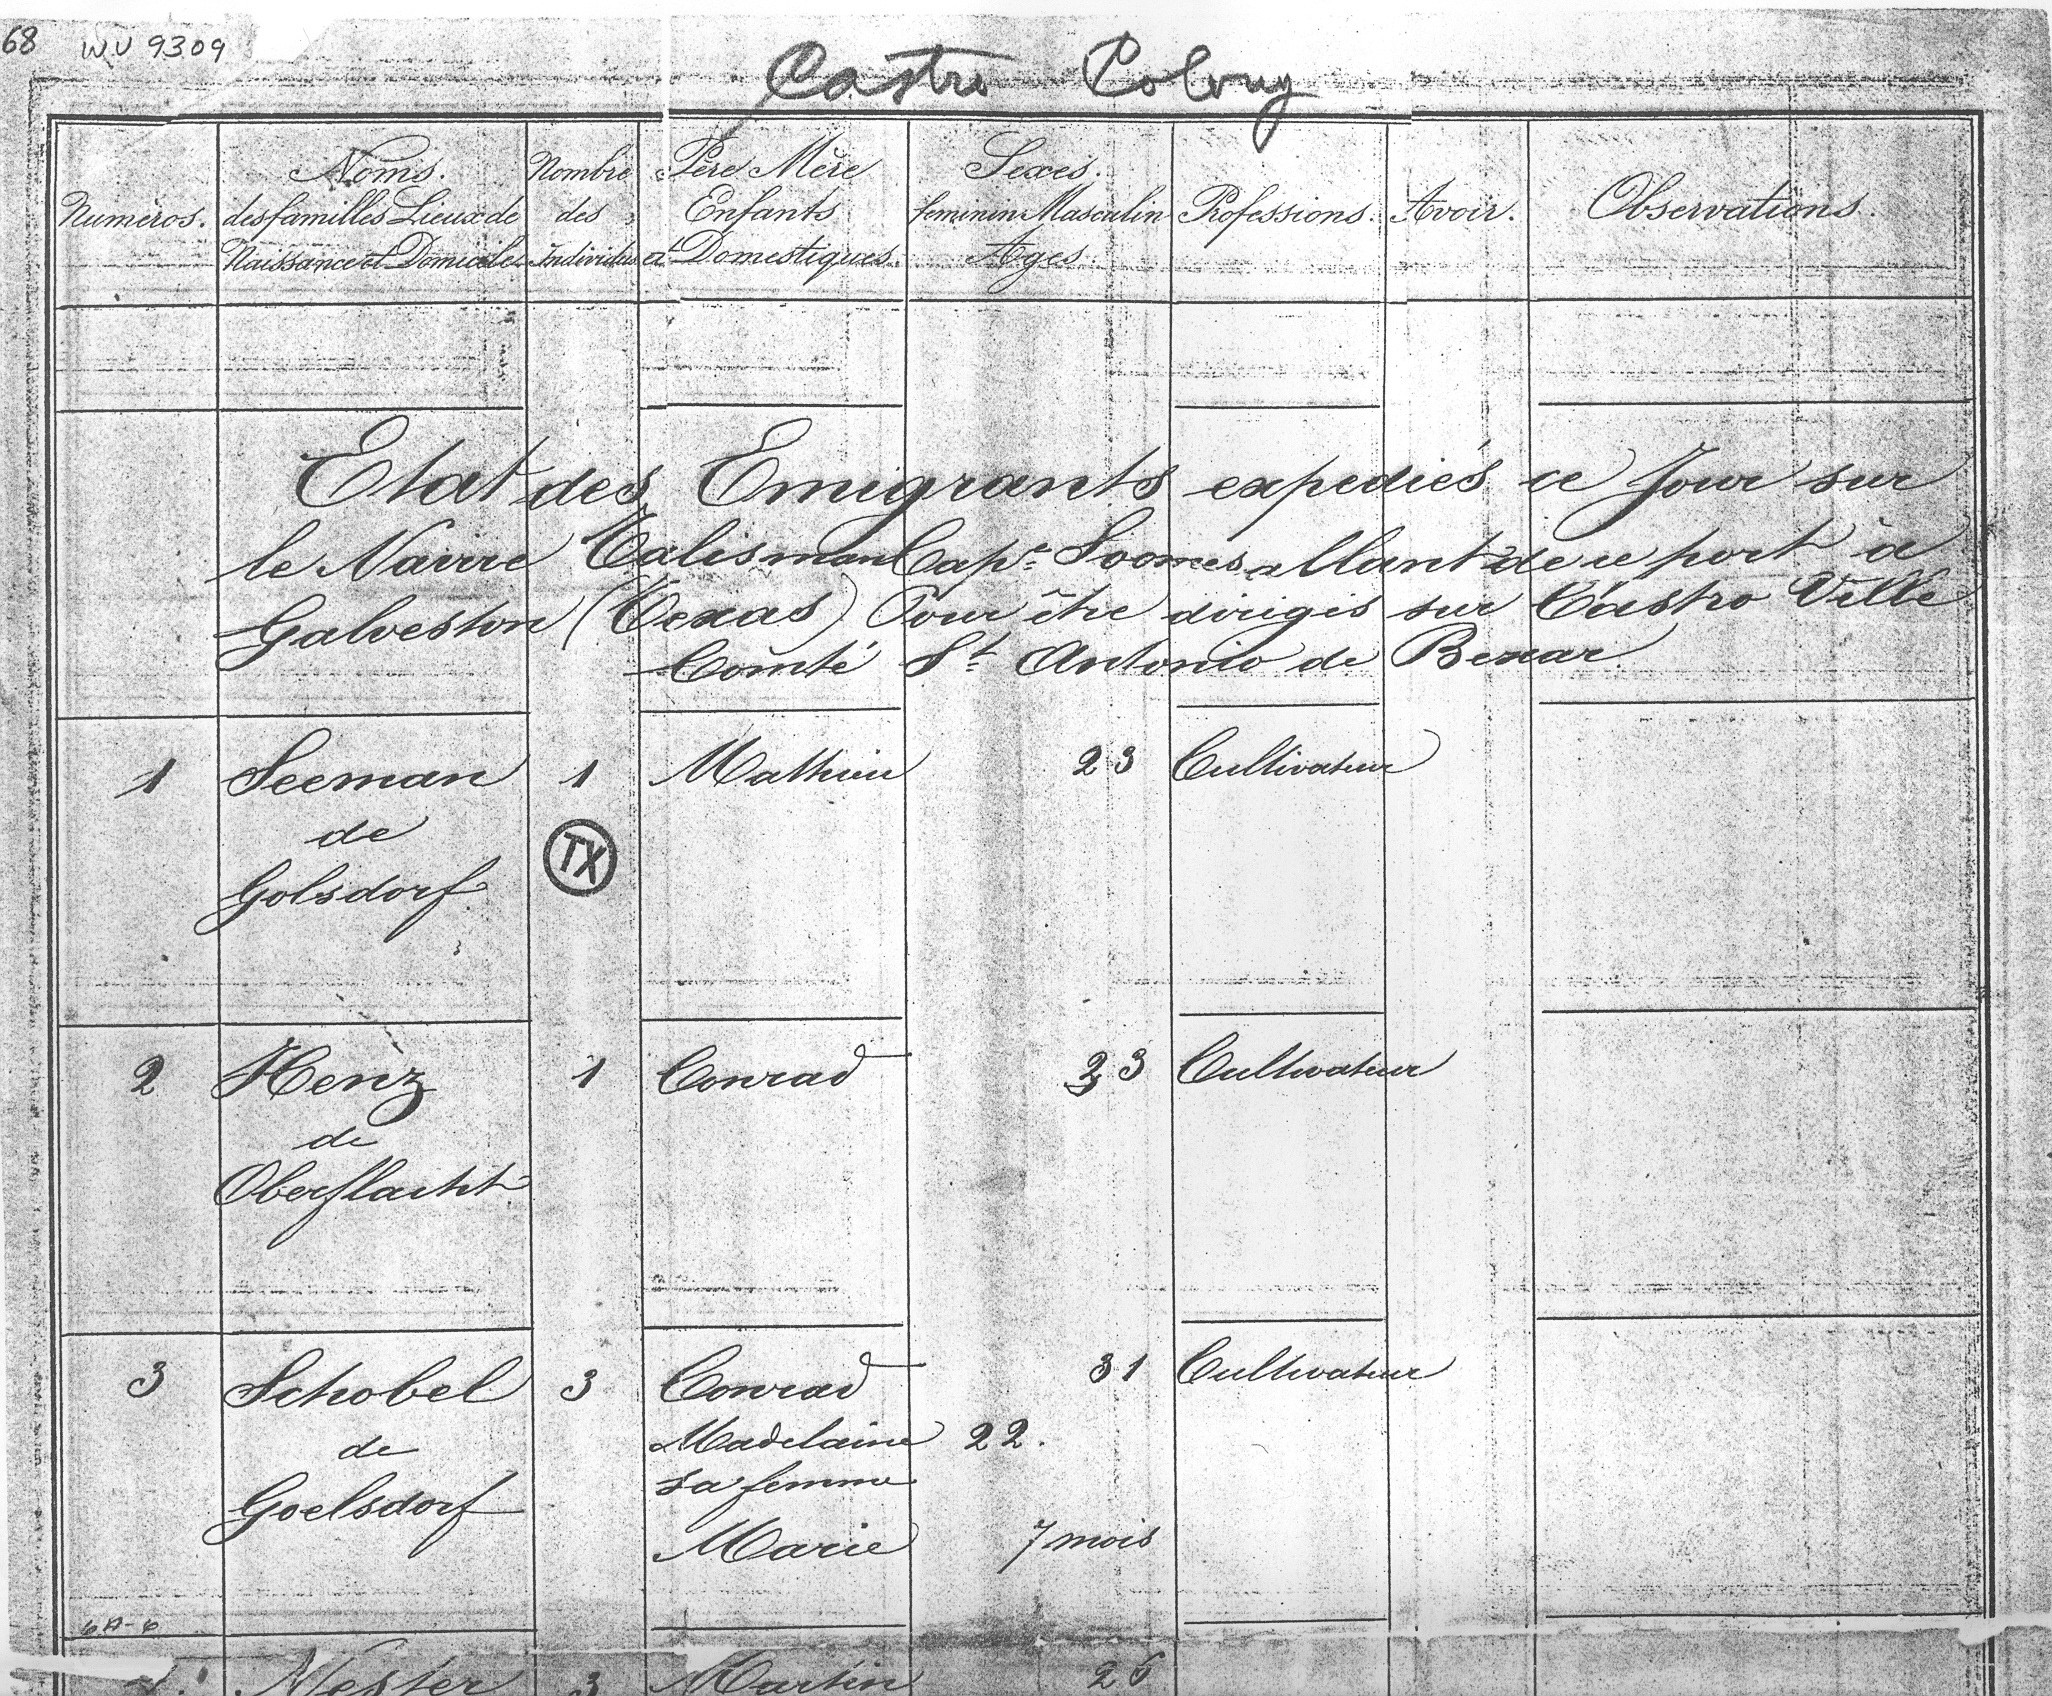 68 W.V 9309
Castro Colony
Numéros.
Noms.
des familles Lieux de
Naissance et Domicile
Nombre
des
Individus
Père Mère
Enfants
et Domestiques.
Sexes.
feminin Masculin
Ages.
Professions.
Avoir.
Observations.
Etat des Emigrants expediés ce Jour sur
le Navire Talisman Capt. Soomes allant de ce port à
Galveston (Texas) Pour être dirigés sur Castro Ville
Comté St. Antonio de Bexar.
1 Seeman 1 Mathieu 23 Cultivateur
de
Golsdorf
TX
2 Henz 1 Conrad 23 Cultivateur
de
Oberflacht
3 Schobel 3 Conrad 31 Cultivateur
Madelaine 22.
de
sa femme
Goelsdorf
Marie 7 mois
6A-6
Mester 3 Martin 26